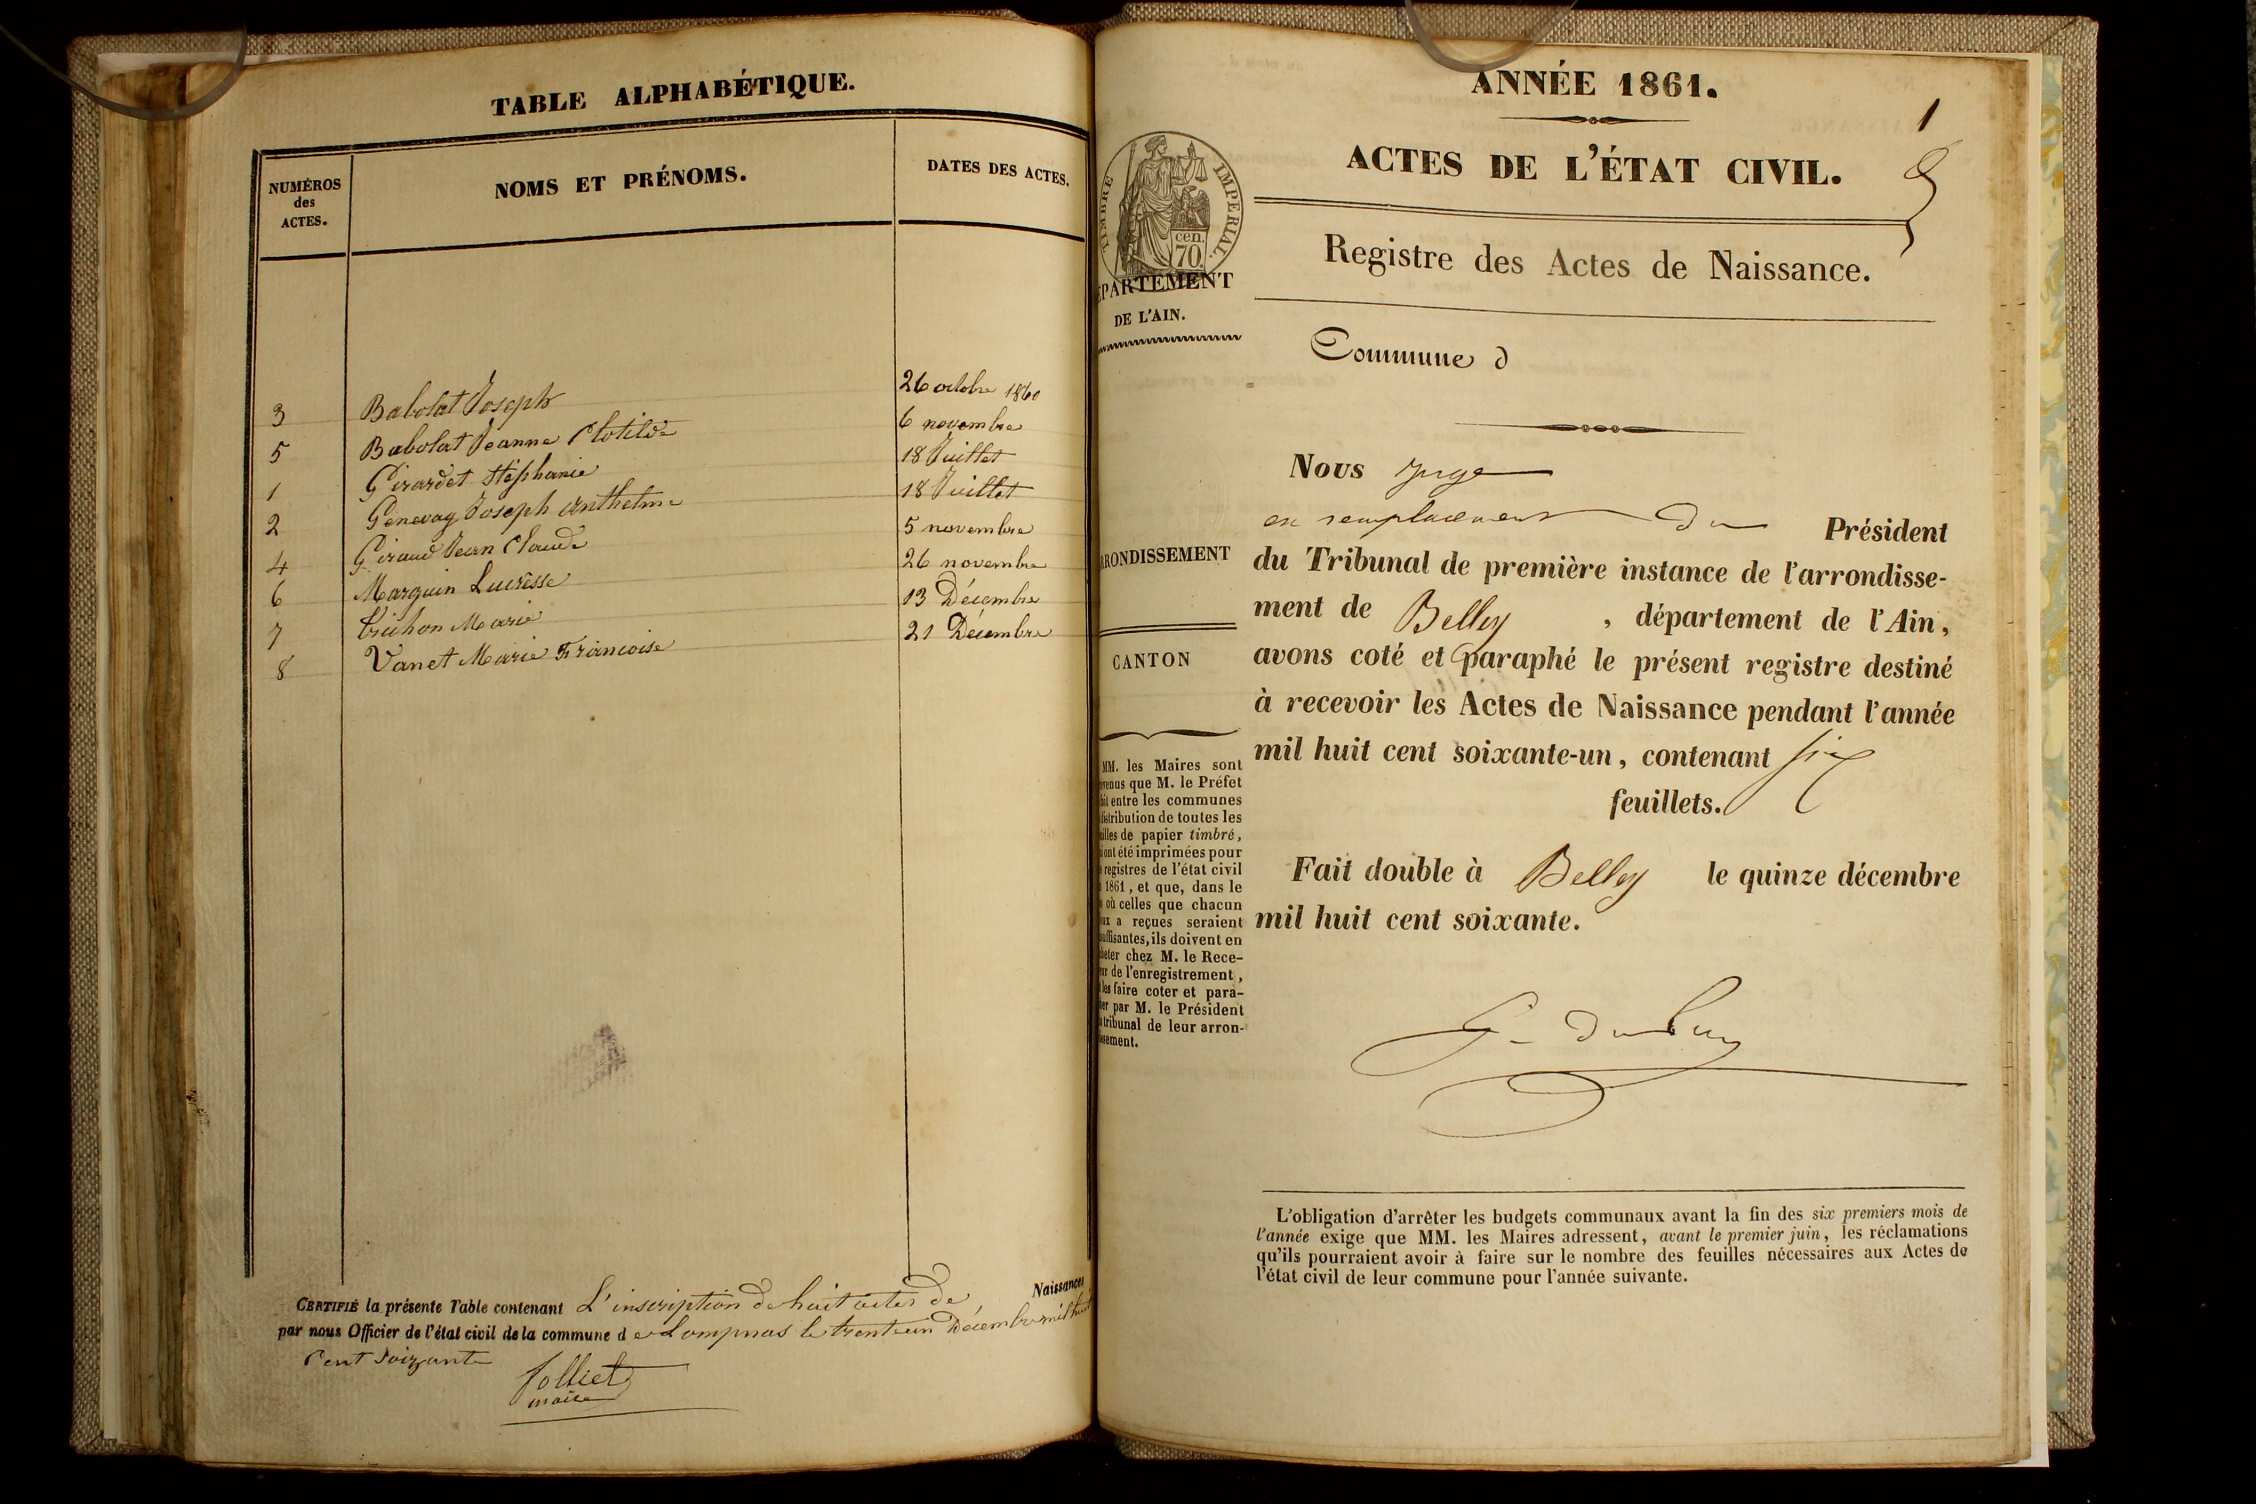 TABLE ALPHABÉTIQUE.
NUMÉROS des ACTES.
NOMS ET PRÉNOMS.
DATES DES ACTES.
3 Babolat Joseph 26 octobre 1860
5 Babolat Jeanne Clotilde 6 novembre
1 Girardet Stéphanie 18 Juillet
2 Genevay Joseph Anthelme 18 Juillet
4 Giraud Jean Claude 5 novembre
6 Marguin Lucresse 26 novembre
7 Marie 13 Décembre
8 Vanet Marie Francoise 21 Décembre
CERTIFIÉ la présente Table contenant L'inscription de huit actes de Naissances
par nous Officier de l'état civil de la commune d e Lompnas le trente un Décembre mil huit
Cent Soixante
Folliet
maire
ANNÉE 1861.
1
ACTES DE L'ÉTAT CIVIL.
TIMBRE IMPERIAL.
70 cen.
Registre des Actes de Naissance.
DÉPARTEMENT
DE L'AIN.
Commune d
Nous Juge
en remplacement du Président
ARRONDISSEMENT
du Tribunal de première instance de l'arrondisse-
ment de Belley, département de l'Ain,
CANTON
avons coté et paraphé le présent registre destiné
à recevoir les Actes de Naissance pendant l'année
mil huit cent soixante-un, contenant six
feuillets.
MM. les Maires sont
venus que M. le Préfet
entre les communes
distribution de toutes les
de papier timbré,
ont été imprimées pour
registres de l'état civil
1861, et que, dans le
où celles que chacun
a reçues seraient
ils doivent en
chez M. le Rece-
de l'enregistrement,
les faire coter et para-
par M. le Président
tribunal de leur arron-
Fait double à Belley le quinze décembre
mil huit cent soixante.
L'obligation d'arrêter les budgets communaux avant la fin des six premiers mois de
l'année exige que MM. les Maires adressent, avant le premier juin, les réclamations
qu'ils pourraient avoir à faire sur le nombre des feuilles nécessaires aux Actes de
l'état civil de leur commune pour l'année suivante.